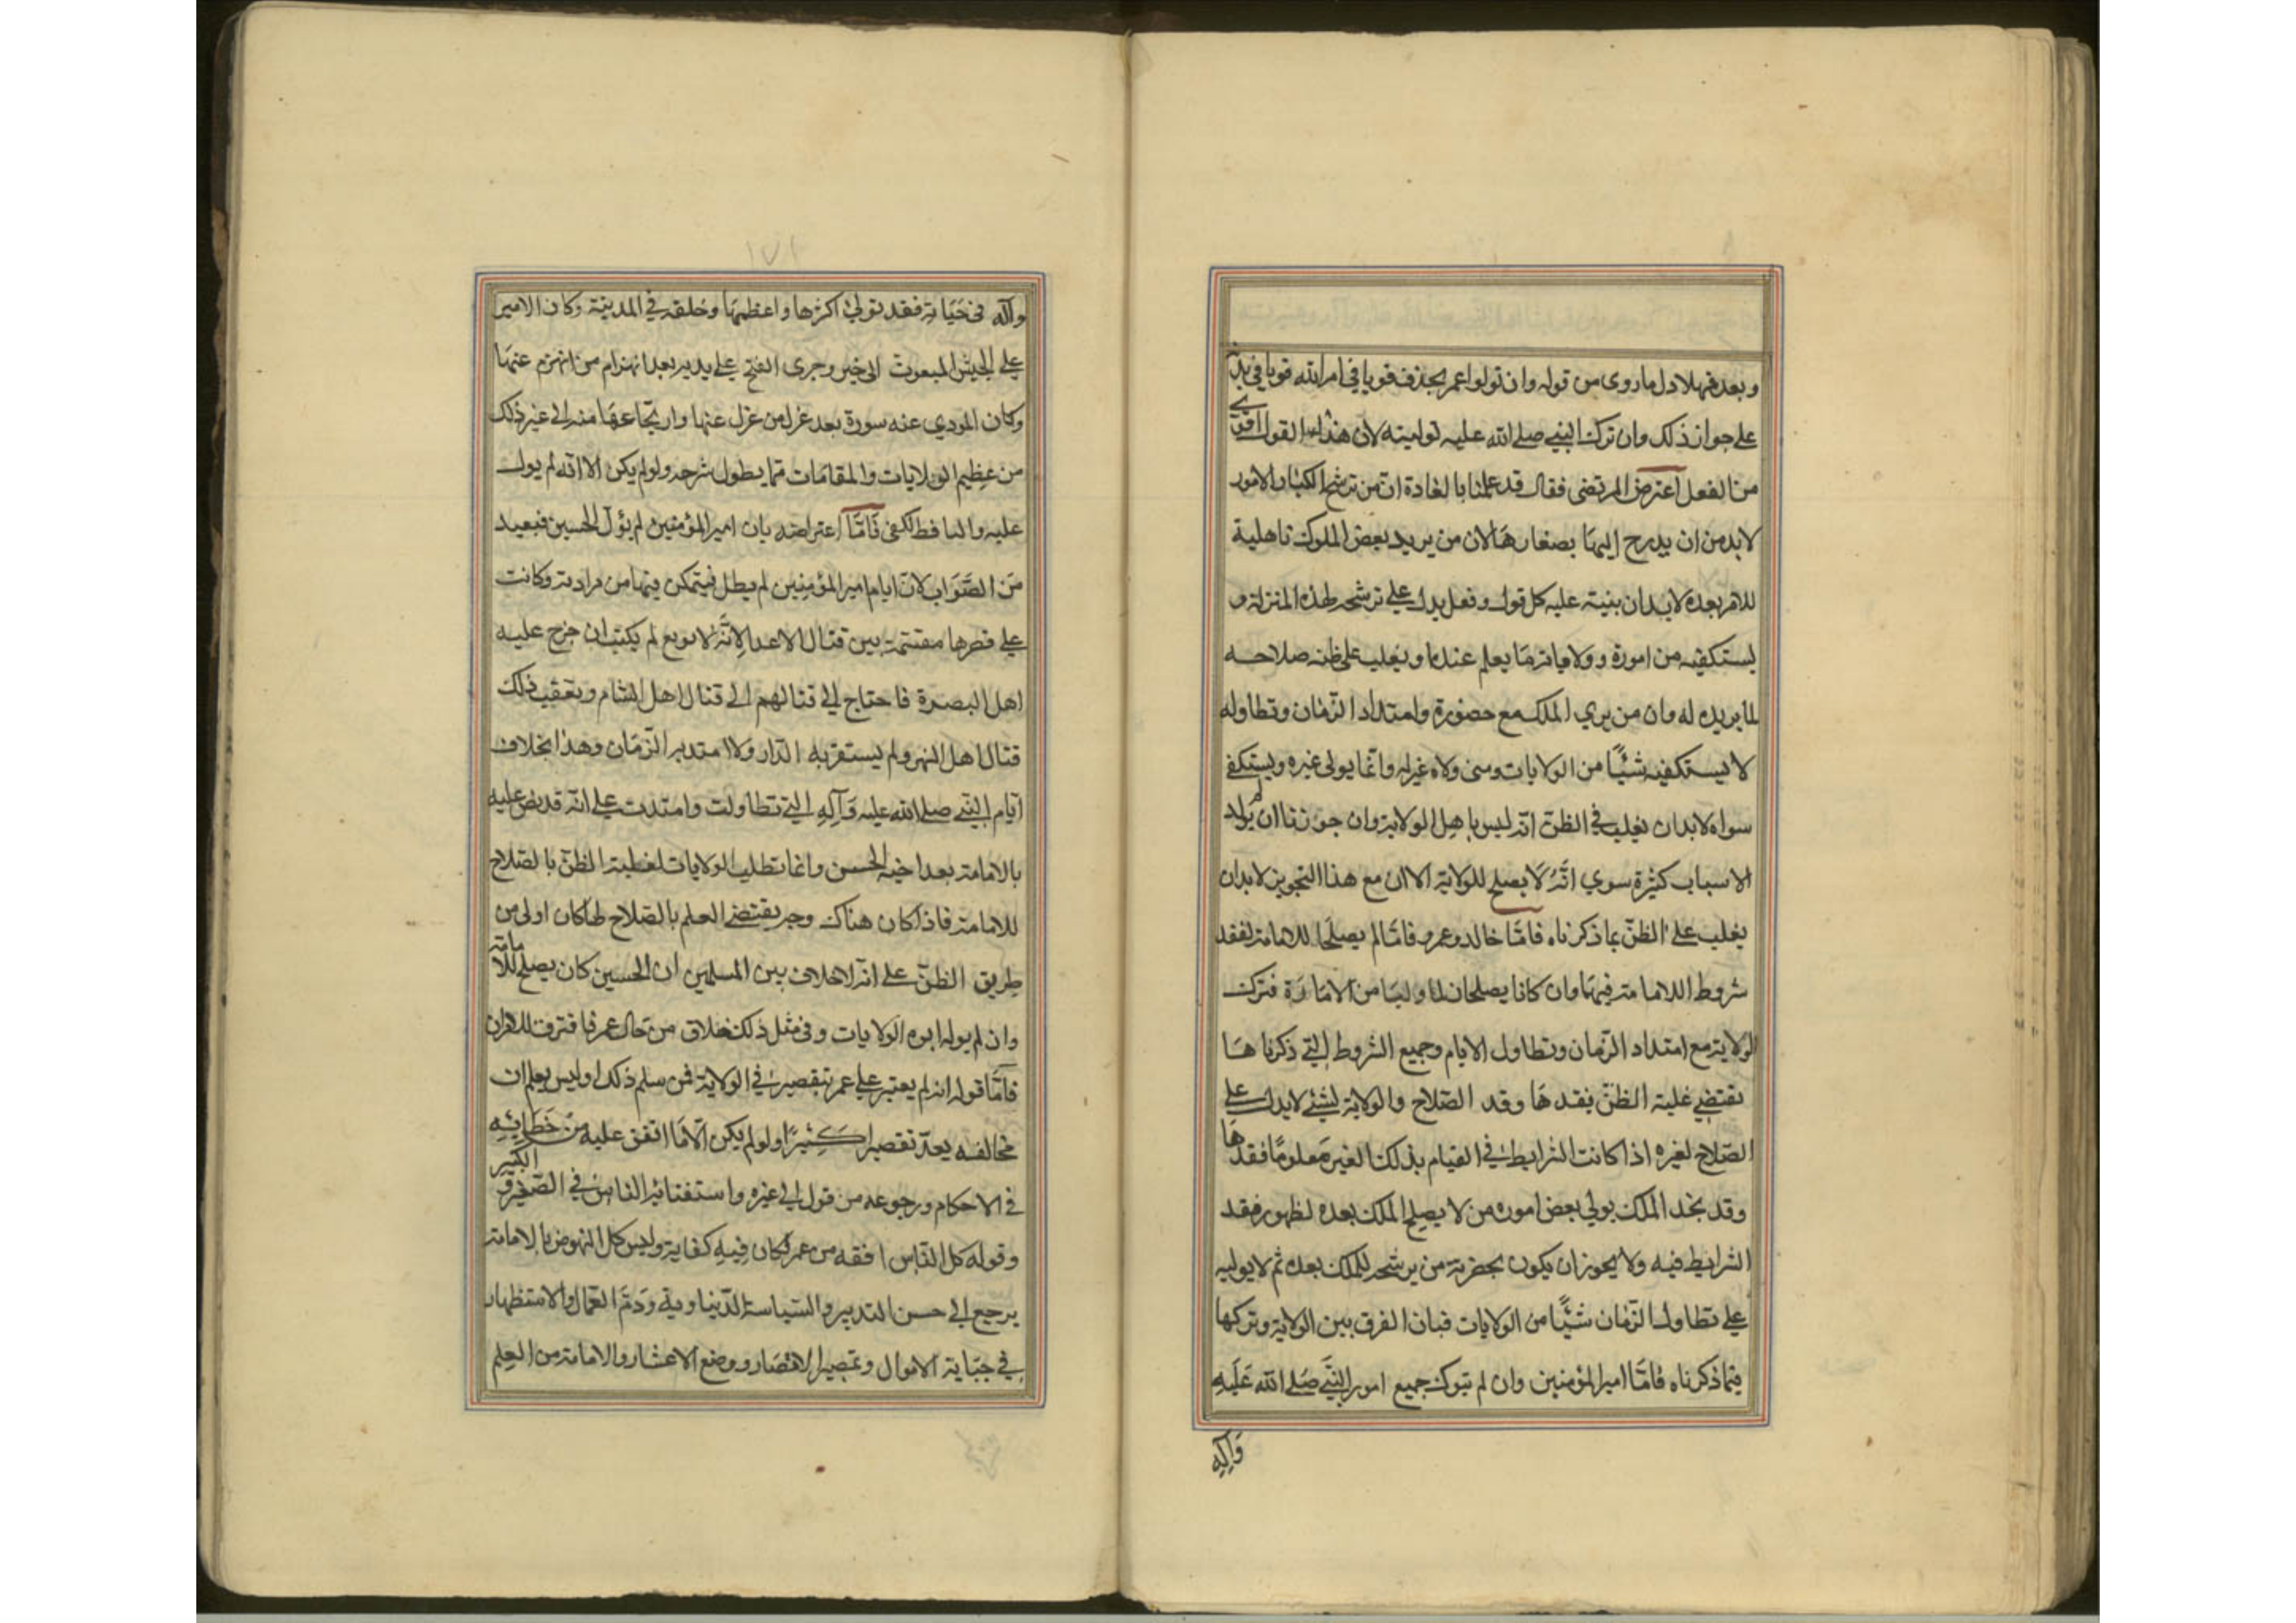 وبعد فهلا دل ما روى من قوله وان تولوا عمر تجدوه قويا في امر الله قويا في بدنه
على جواز ذلك وان ترك النبي صلى الله عليه توليته لان هذا القول اقوى
من الفعل اعترض المرتضى فقال قد علمنا بالعادة ان من ترشح لكبار الامور
لا بد من ان يدرج اليها بصغارها لان من يريد بعض الملوك تاهليه
للامر بعده لا بد ان ينبه عليه كل قول وفعل يدل على ترشحه لهذه المنزلة و
يستكفيه من اموره وولاياته ما يعلم عندها ويغلب على ظنه صلاحه
لما يريده له وان من يري الملك مع حضوره وامتداد الزمان وتطاوله
لا يستكفيه شيئا من الولايات ومتى ولاه عزله وانما يولى غيره ويستكفي
سواه لا بد ان يغلب في الظن انه ليس باهل الولاية وان جوزنا ان لم يوله
الاسباب كثيرة سوي انه لا يصلح للولاية الا ان مع هذا التجويز لا بد ان
يغلب على الظن بما ذكرناه فاما خالد وعمرو فاما لم يصلحا للامامة لفقد
شروط اللامامة فيهما وان كانا يصلحان لما وليا من الامارة فترك
الولاية مع امتداد الزمان وتطاول الايام وجميع الشروط التي ذكرناها
تقتضي غلبة الظن بفقدها وقد الصلاح والولاية لشئ لا يدل على
الصلاح لغيره اذا كانت الشرايط في القيام بذلك الغير معلوما فقدها
وقد نجد الملك يولي بعض اموره من لا يصلح للملك بعده لظهور فقد
الشرايط فيه ولا يجوز ان يكون بحضرته من يرشحه للملك بعده ثم لا يوليه
على تطاول الزمان شيئا من الولايات فبان الفرق بين الولاية وتركها
فيما ذكرناه فاما امير المؤمنين وان لم يتول جميع امور النبي صلى الله عليه
وآله
١٧١
وآله في حياته فقد تولى اكثرها واعظمها وخلفه في المدينة وكان الامير
على الجيش المبعوث الى خيبر وجرى الفتح على يديه بعد انهزام من انهزم عنها
وكان المودي عنه سورة بعد عزل من عزل عنها وارتجاعها منه الى غير ذلك
من عظيم الولايات والمقامات مما يطول شرحه ولو لم يكن الا انه لم يول
عليه واليا قط لكفى فاما اعتراضه بان امير المؤمنين لم يول الحسين فبعيد
من الصواب لان ايام امير المؤمنين لم يطل فيتمكن فيها من مراداته وكانت
على قصرها منقسمة بين قتال الاعدا لانه لا بويع لم يلبث ان خرج عليه
اهل البصرة فاحتاج الى قتالهم الى قتال اهل الشام وتعقب ذلك
قتال اهل النهر ولم يستقر به الدار ولا امتد به الزمان وهذا بخلاف
ايام النبي صلى الله عليه وآله التي تطاولت وامتدت على انه قد نص عليه
بالامامة بعد اخيه الحسن وانما تطلب الولايات لغلبة الظن بالصلاح
للامامة فاذا كان هناك وجه يقتضي العلم بالصلاح لها كان اولى من
طريق الظن على انه لا خلاف بين المسلمين ان الحسين كان يصلح للامامة
وان لم يوله ابوه الولايات وفي مثل ذلك خلاف من حال عمر فافترق الامران
فاما قوله انه لم يعتبر على عمر بتقصير في الولاية فمن سلم ذلك اوليس يعلم ان
مخالفه يعد تقصيرا كثيرا ولو لم يكن الا ما اتفق عليه من خطائه
في الاحكام ورجوعه من قول الى غيره واستفتائه الناس في الصغير والكبير
وقوله كل الناس افقه من عمر لكان فيه كفاية وليس كل النهوض بالامامة
يرجع الى حسن التدبير والسياسة الدنياوية ورم العمال والاستظهار
في جباية الاموال وتمصير الامصار ووضع الاعشار والامامة من العلم